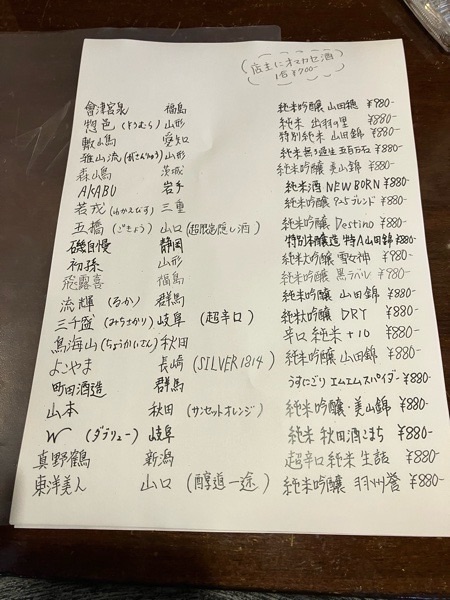 店主にオマカセ酒
1合¥700-
會津宮泉 福島 純米吟醸 山田穂 ¥880-
惣邑(そうむら) 山形 純米 出羽の里 ¥880-
敷嶋 愛知 特別純米 山田錦 ¥880-
雅山流(がさんりゅう) 山形 純米 無ろ過生 五百万石 ¥880-
森嶋 茨城 純米吟醸 美山錦 ¥880-
AKABU 岩手 純米酒 NEW BORN ¥880-
若戎(わかえびす) 三重 純米吟醸 ブレンド ¥880-
五橋(ごきょう) 山口(超限定隠し酒) 純米吟醸 Destino ¥880-
磯自慢 静岡 特別本醸造 特A山田錦 ¥880-
初孫 山形 純米大吟醸 雪女神 ¥880-
飛露喜 福島 純米吟醸 黒ラベル ¥880-
流輝(るか) 群馬 純米吟醸 山田錦 ¥880-
三千盛(みちさかり) 岐阜(超辛口) 純米大吟醸 DRY ¥880-
鳥海山(ちょうかいさん) 秋田 辛口 純米 +10 ¥880-
よこやま 長崎(SILVER1814) 純米吟醸 山田錦 ¥880-
町田酒造 群馬 うすにごり エムエムスパイダー ¥880-
山本 秋田(サンセットオレンジ) 純米吟醸・美山錦 ¥880-
W(ダブリュー) 岐阜 純米 秋田酒こまち ¥880-
真野鶴 新潟 超辛口純米 生詰 ¥880-
東洋美人 山口(醇道一途) 純米吟醸 羽州誉 ¥880-